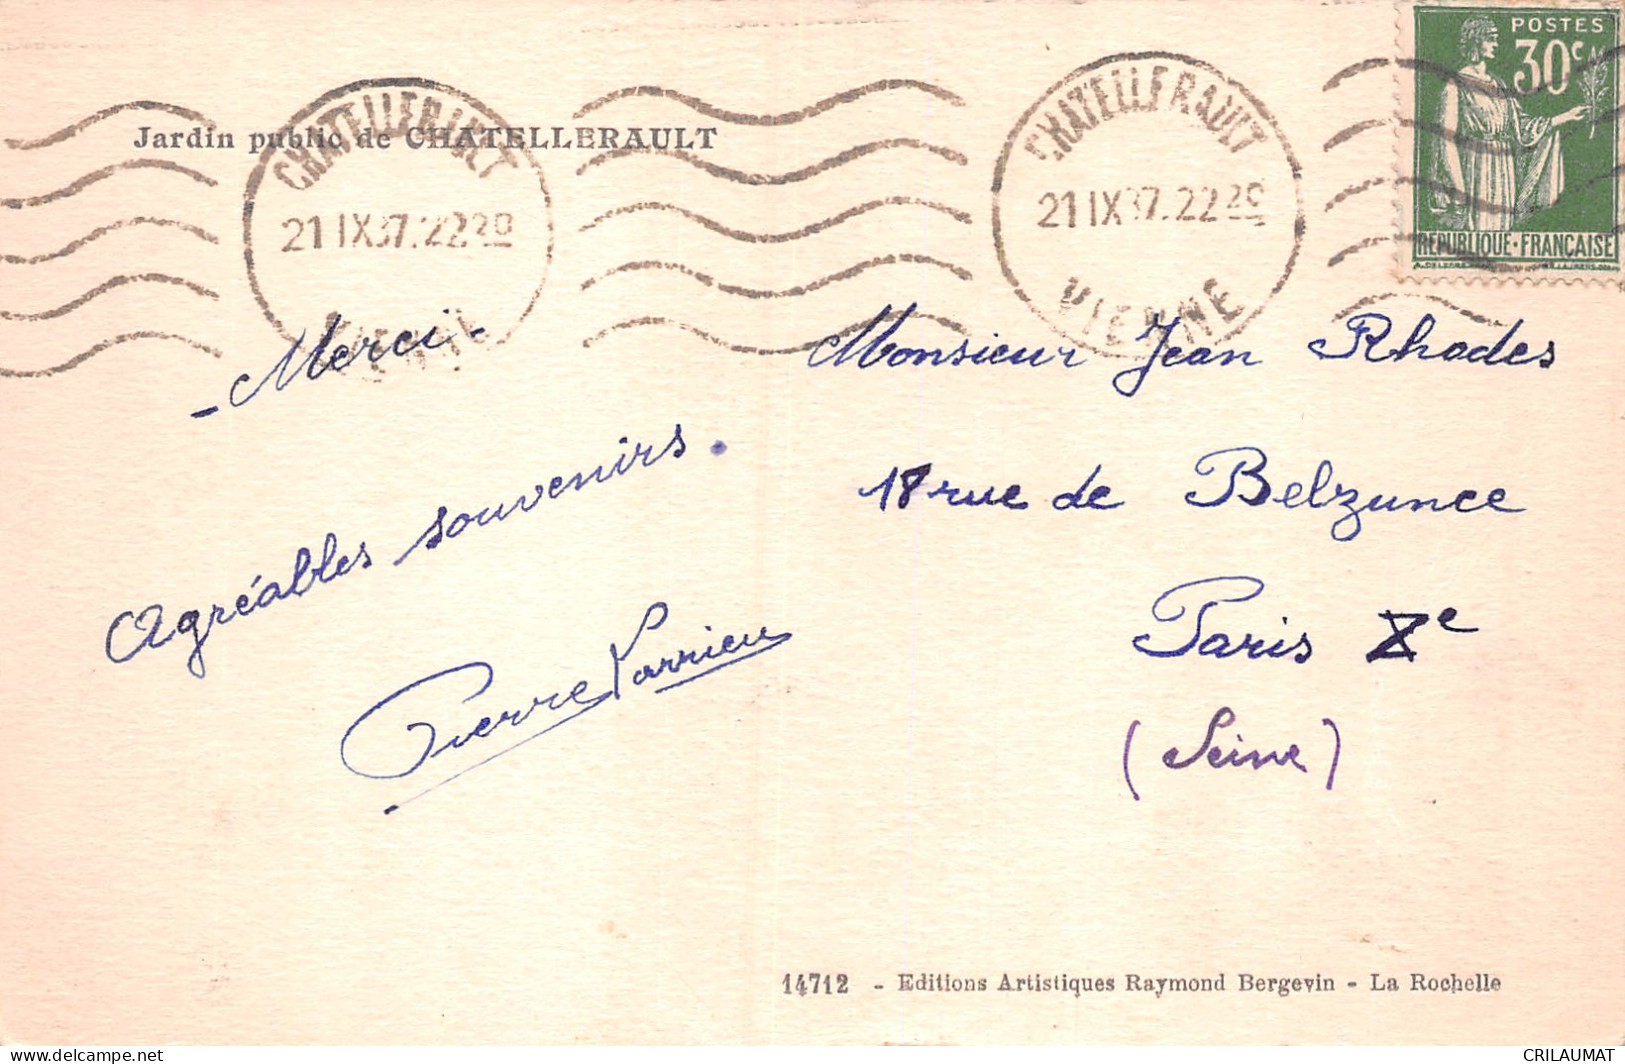 POSTES
30c
REPUBLIQUE·FRANÇAISE
CHATELLERAULT
21 IX 37.22 20
VIENNE
CHATELLERAULT
21 IX 37.22 20
VIENNE
Jardin public de CHATELLERAULT
- Merci -
Agréables souvenirs.
Pierre Larrieu
Monsieur Jean Rhodes
18 rue de Belzunce
Paris Xe
(Seine)
14712 - Editions Artistiques Raymond Bergevin - La Rochelle
www.delcampe.net
CRILAUMAT